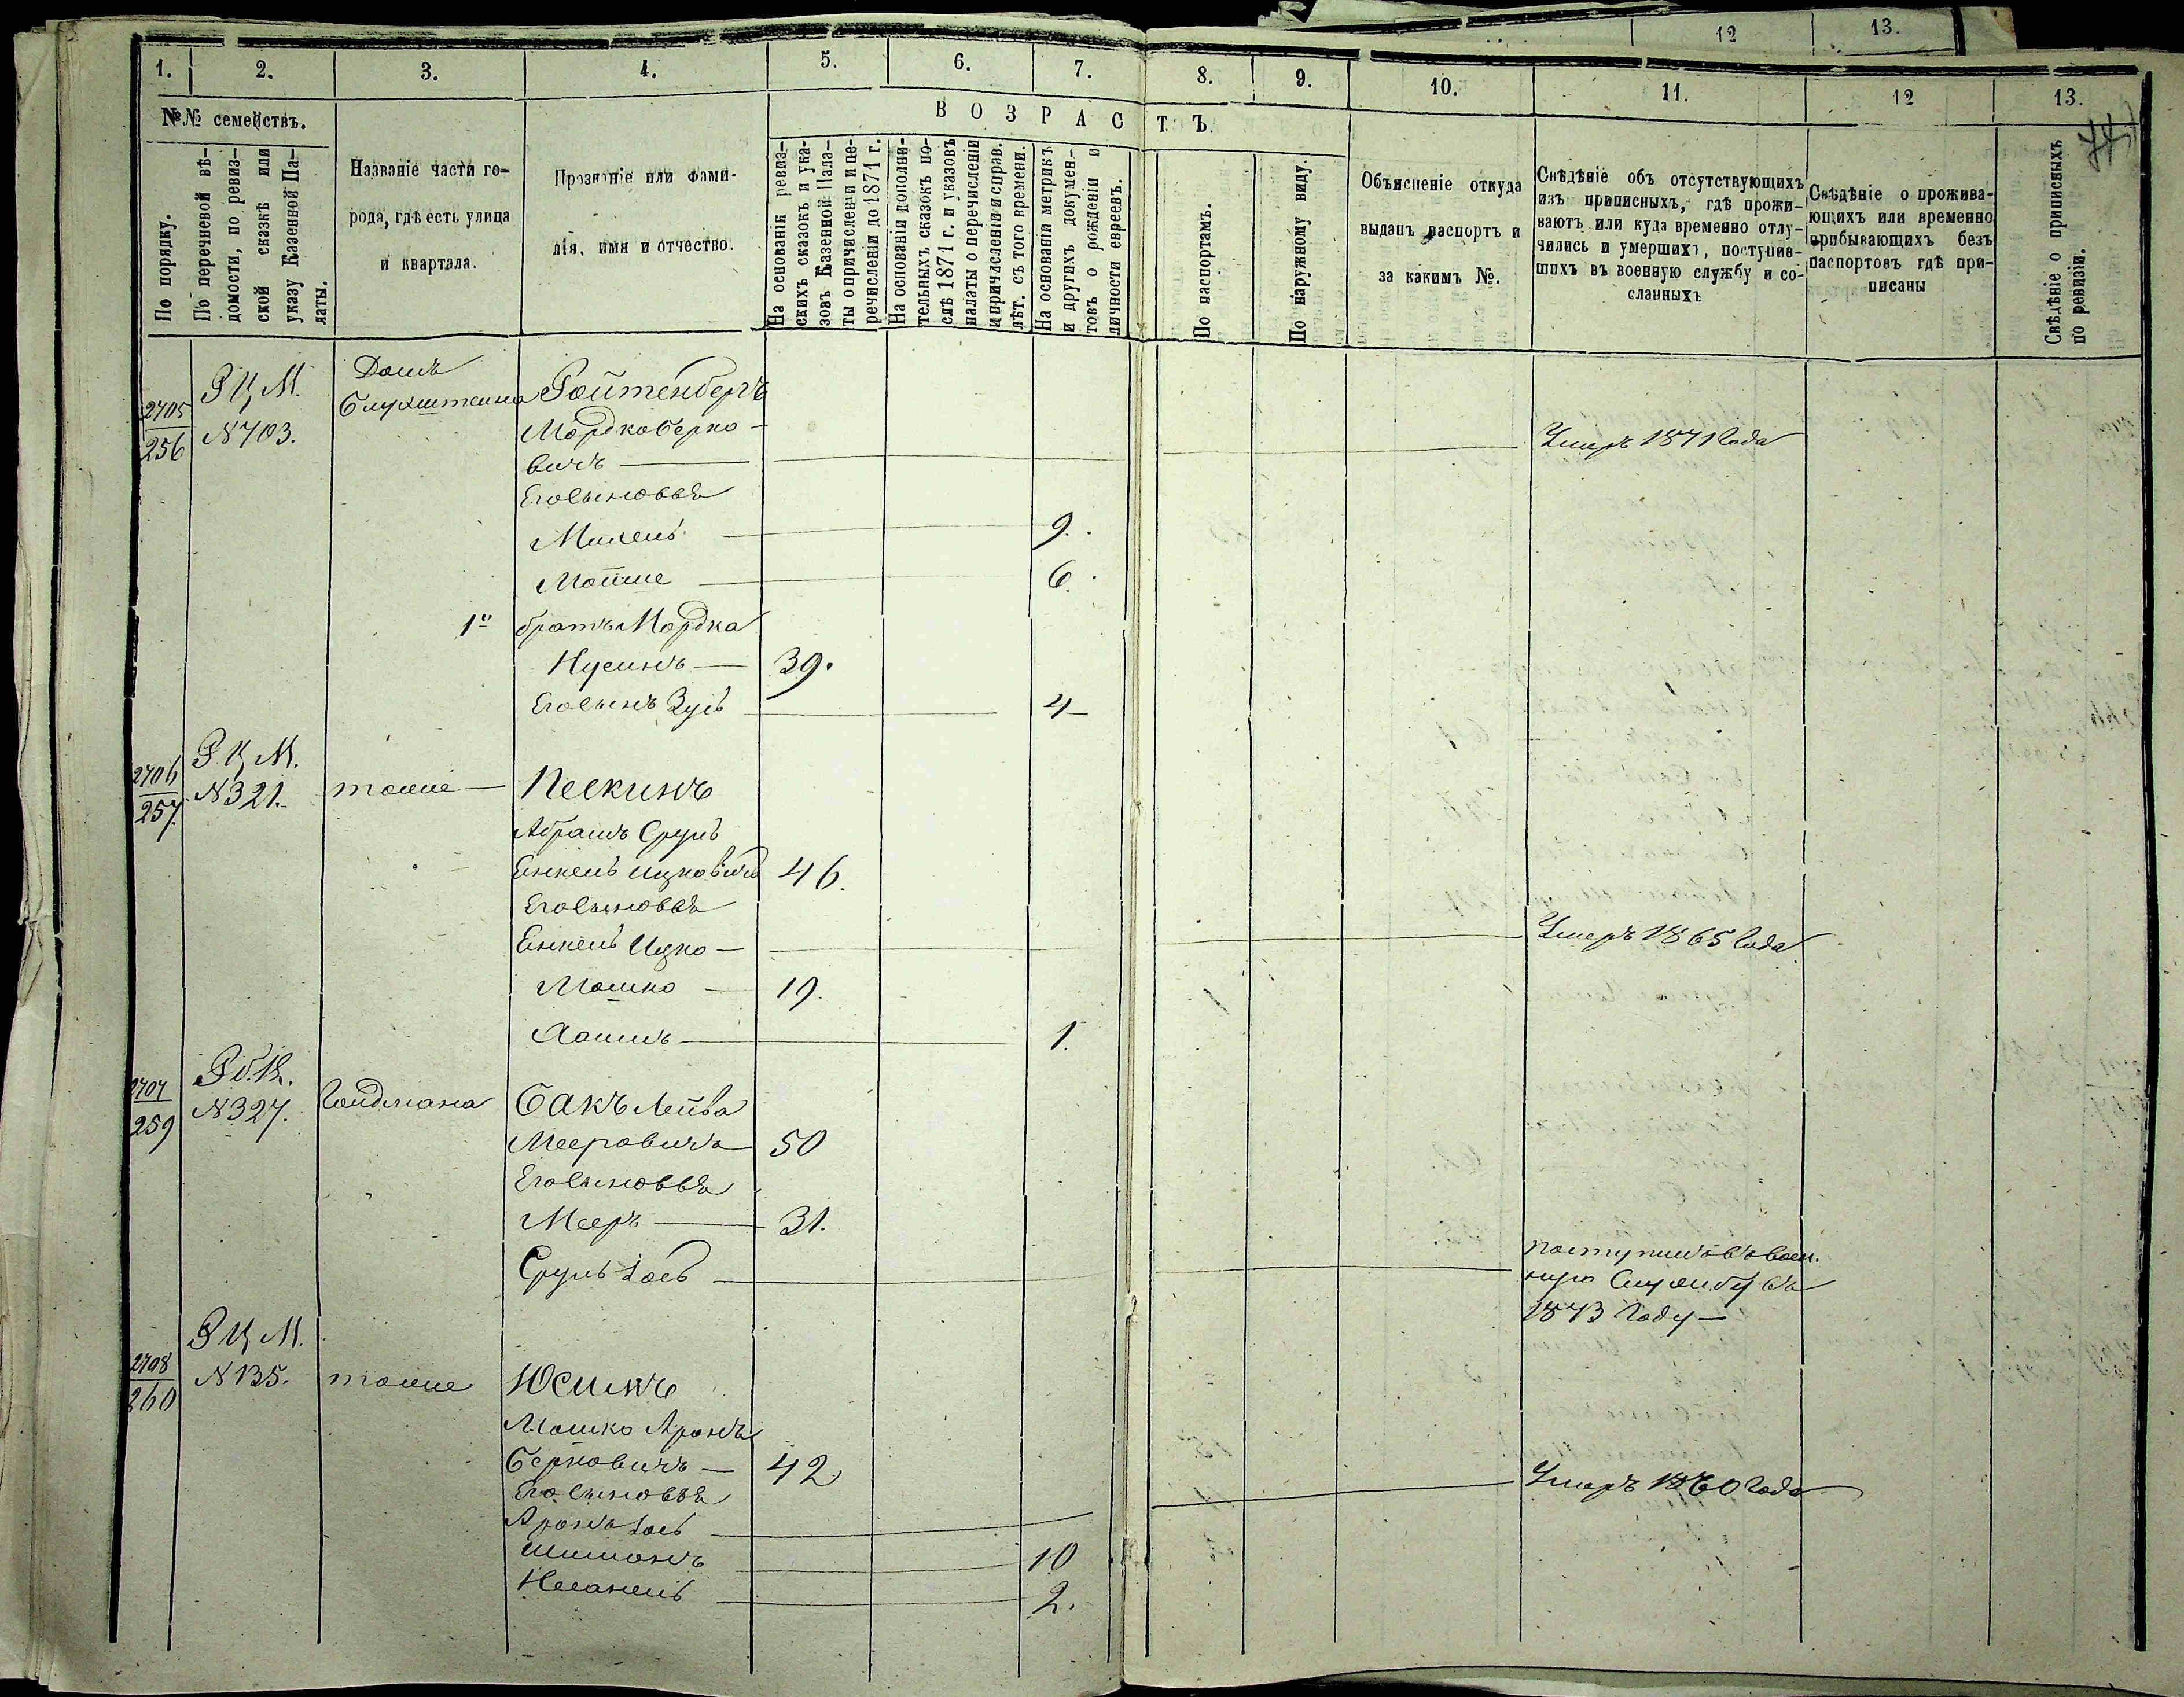 12 13.
1. 2. 3. 4. 5. 6. 7. 8. 9. 10. 11. 12 13.
№№ семействъ.
По порядку.
По перечневой вѣ-
домости, по ревиз-
ской сказкѣ или
указу Казенной Па-
латы.
Названіе части го-
рода, гдѣ есть улица
и квартала.
Прозваніе или фами-
лія, имя и отчество.
ВОЗРАСТЪ.
На основаніи ревиз-
скихъ сказокъ и ука-
зовъ Казенной Пала-
ты о причисленіи и пе-
речисленіи до 1871 г.
На основаніи дополни-
тельныхъ сказокъ по-
слѣ 1871 г. и указовъ
палаты о перечисленіи
и причисленіи и справ.
лѣт. съ того времени.
На основаніи метрикъ
и другихъ докумен-
товъ о рожденіи и
личности евреевъ.
По паспортамъ.
По наружному виду.
Объясненіе откуда
выданъ паспортъ и
за какимъ №.
Свѣдѣніе объ отсутствующихъ
изъ приписныхъ, гдѣ прожи-
ваютъ или куда временно отлу-
чились и умершихъ, поступив-
шихъ въ военную службу и со-
сланныхъ
Свѣдѣніе о прожива-
ющихъ или временно
прибывающихъ безъ
паспортовъ гдѣ при-
писаны
Свѣдѣніе о приписныхъ
по ревизіи.
2705
256
Р Ц М.
N 703.
Домъ
Ройтенбергъ
Мордко Берко-
вичъ
Умеръ 1871 Года
Его сыновья
9.
6.
1й братъ Мордка
Нусинъ 39.
Его сынъ Зусь 4
2706
257.
Р Ц М.
N 321.
тоже
Пескинъ
Абрамъ Сруль
Енкель Ицковичъ 46.
Его сыновья
Енкель Ицко
Умеръ 1865 Года
Мошко 19.
1.
2707
259
N 327.
Гольдмана
Бакъ Лейба
Мееровичъ 50
Его сыновья
Мееръ 31.
Сруль Іось
поступилъ въ воен.
ную Службу въ
1873 Году
2708
260
Р Ц М.
N 135.
тоже
Юсинъ
Мошко Аронъ
Берковичъ 42
Его сыновья
Аронъ Іось
Умеръ 1860 Года
Шимонъ 10
2.